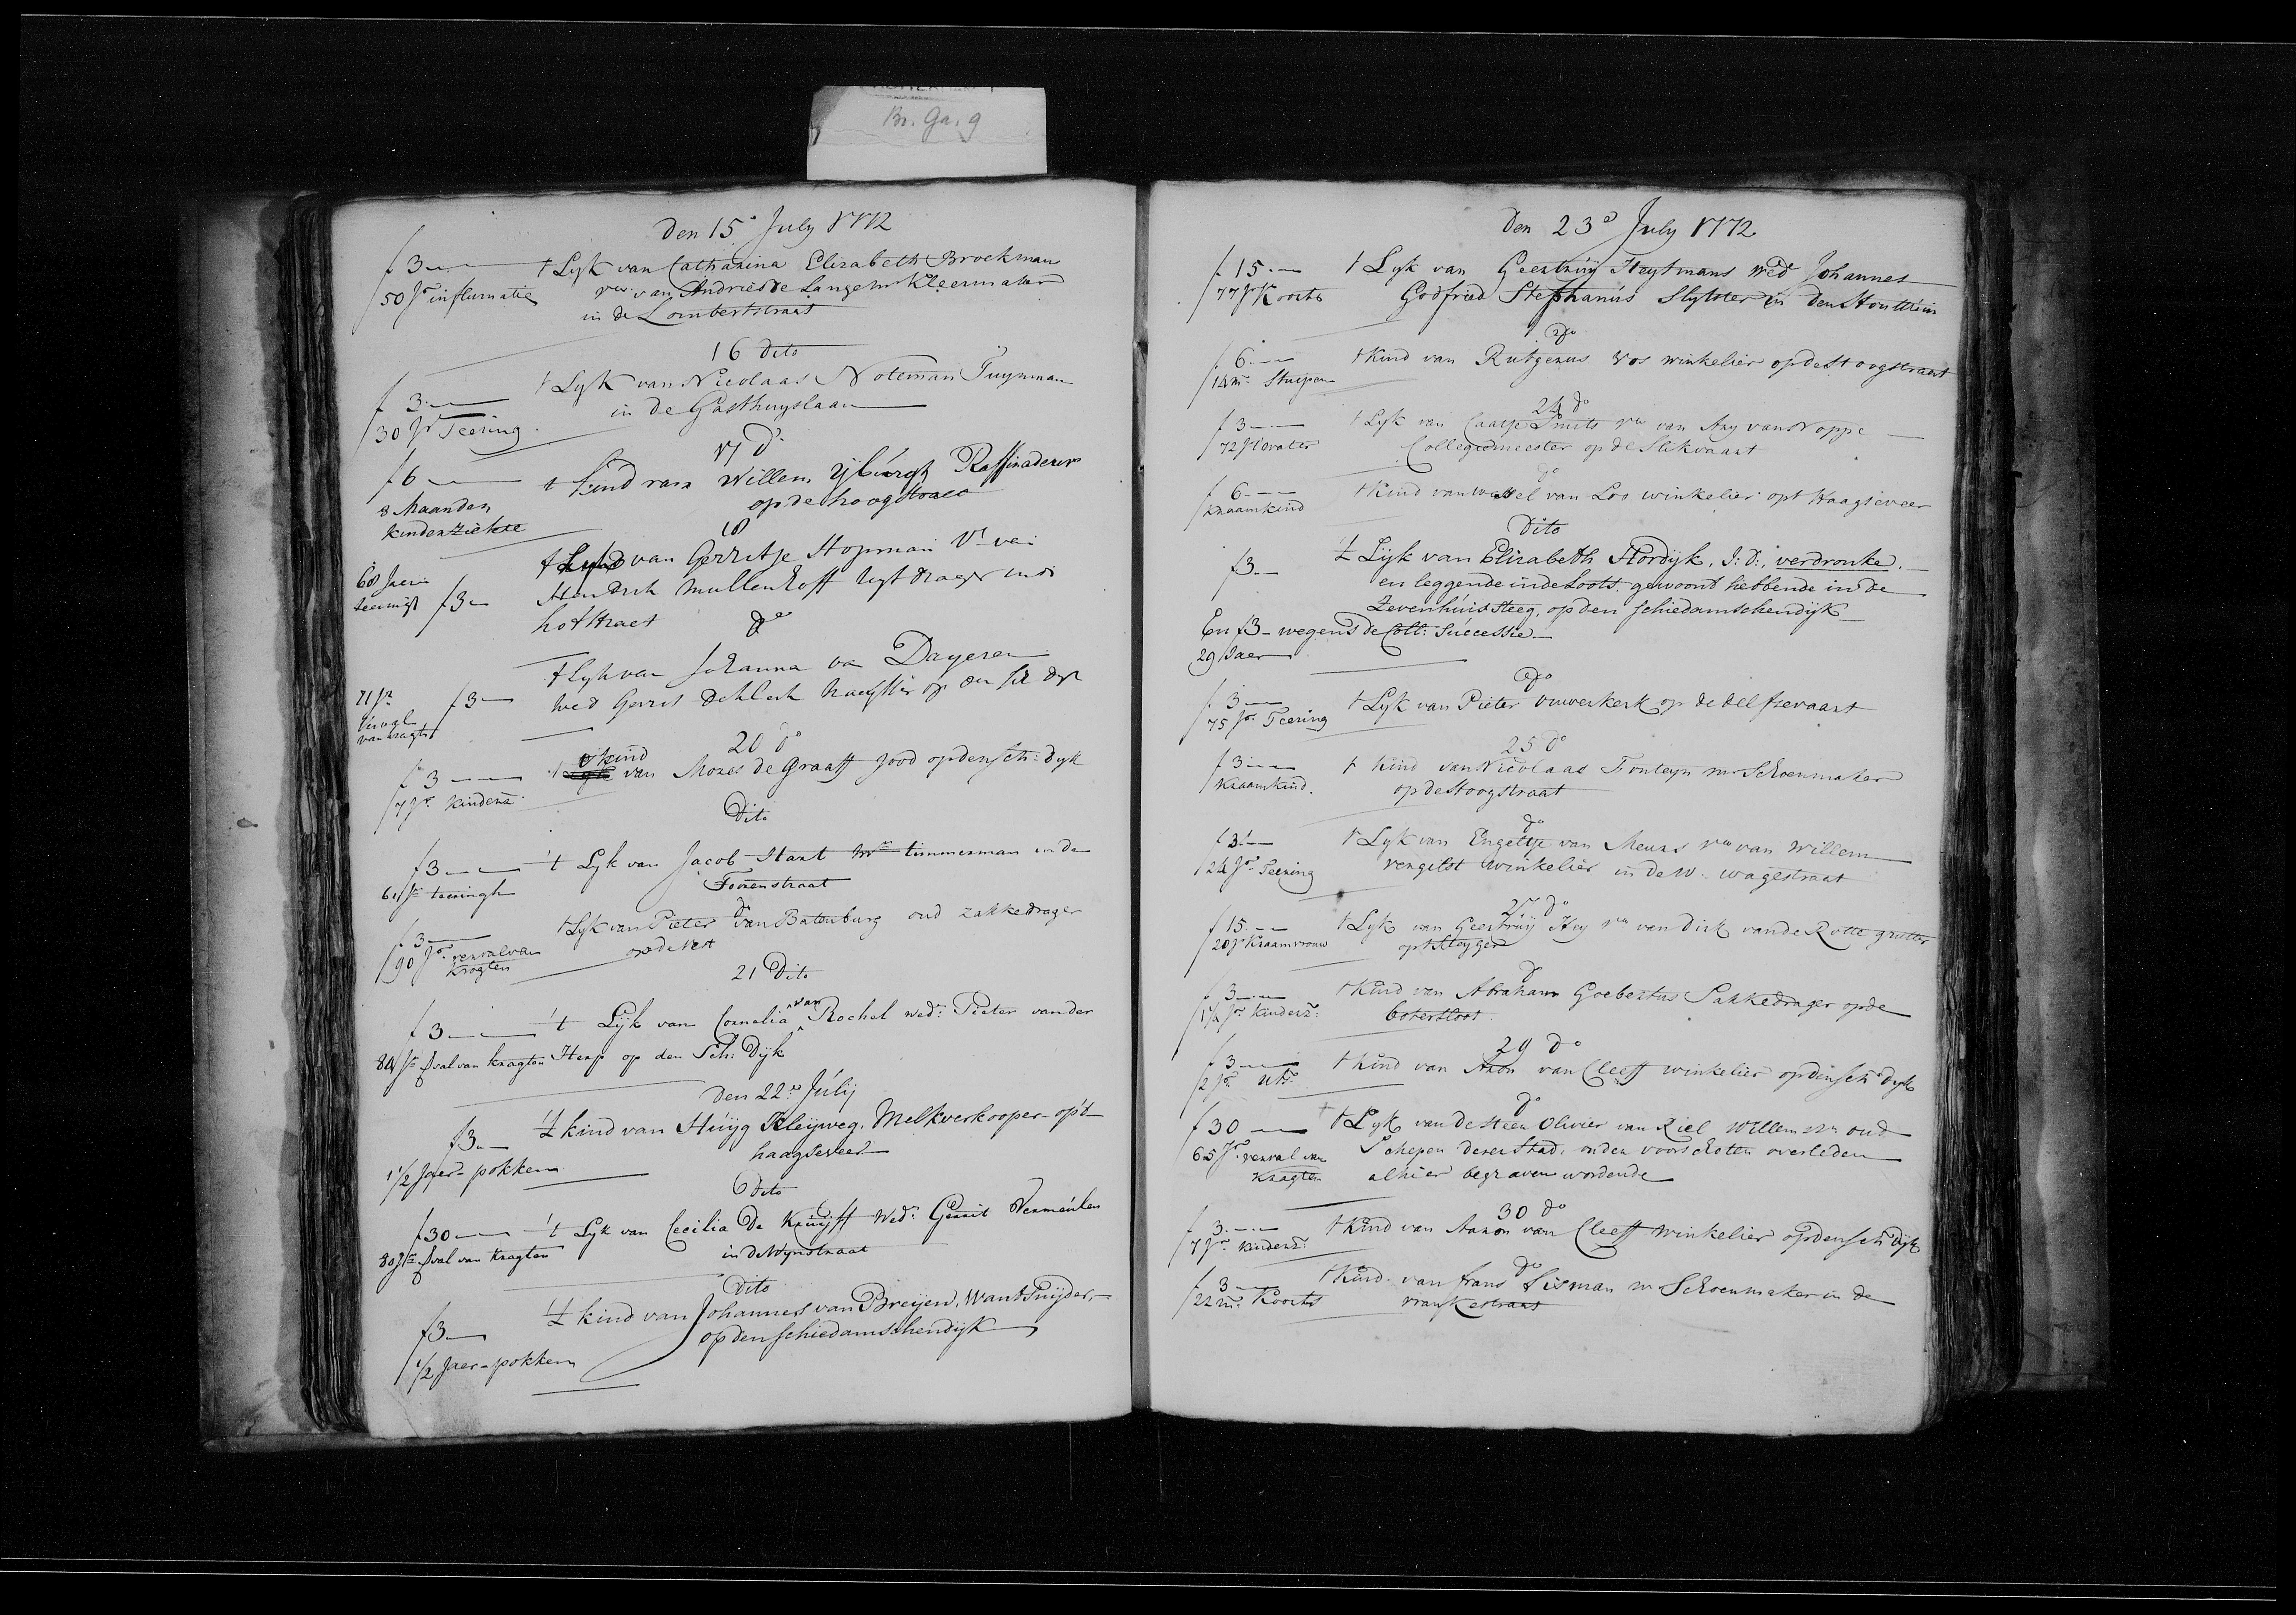 Br. Ga. 9
Den 15º July 1772
f 3 — t Lyk van Catharina Elisabeth Brockman
50 Jr influmatie vw van Andries de Lange mr Kleermaker
in de Lombertstraat
16 Dito
f 3 — t Lyk van Nicolaas Noteman Tuynman
30 Jr Teering in de Gasthuyslaan
17 Dº
f 6 — t kind van Willem Ijburgh Raffinadeur
8 Maanden op de hoogstraat
kinderziekte
18
t Lyk van Gerritje Hopman Vr van
60 Jaer f 3 — Hendrik Mullenhoff ligt drager in de
hofstraet
dº
t Lyk van Johanna va Dayeren
71 Jr f 3 — Wed Gerrit de Klerk op den sch dyk
verval
van kragte
20 dº
f 3 — t kind van Mozes de Graaff Jood op den Sch: dyk
7 Jr kinderz
Dito
f 3 — 't Lyk van Jacob Hart Mr timmerman in de
61 Jr teeringh Toorenstraat
dº
f 3 — t Lyk van Pieter van Batenburg oud zakkedrager
90 Jr. verval van op de vest
kragten
21 Dito
f 3 — 't Lijk van Cornelia van Rochel wedr Pieter van der
84 Jr Verval van kragten Herp op den Sch: Dijk
Den 22e Julij
f 3 — 't kind van Huijg Kleijweg, Melkverkooper op't
1½ Jaer - pokken haagseveer
Dito
f 30 — 't Lyk van Cecilia De Kruijff Wedr Gerrit Vermeulen
80 Jr Verval van Kragten in de Wynstraat
Dito
f 3 — 't kind van Johannes van Breijen, Want Snijder,
½ Jaer - pokken op den schiedamschendijk
Den 23e July 1772
f 15 — t Lyk van Geertruij Heytmans wed Johannes
77 Jr Koorts Godfried Stephanus Slyster in den Houttuin
dº
f 6 — t Kind van Rutgerus Vos winkelier op de Hoogstraat
14 m. Stuipen
24 dº
f 3 — t Lyk van Caatje Smits vw van Ary van Noppe
72 Jr Collegiemeester op de Slikvaart
dº
f 6 — t Kind van Wessel van Los winkelier opt Haagseveer
kraamkind
Dito
f 3 — 't Lijk van Elizabeth Hordijk, J: D:, verdronke
en leggende in de Loots, gewoont hebbende in de
Zevenhuissteeg, op den schiedamschendijk
En f 3 - wegens de Coll: Successie
29 Jaer
dº
f 3 — t Lyk van Pieter Ouwerkerk op de delfsevaart
75 Jr Teering
25 dº
f 3 — t kind van Nicolaas Fonteyn mr Schoenmaker
Kraamkind. op de Hoogstraat
dº
f 3 — t Lyk van Engeltje van Meurs vw van Willem
24 Jr Teering vengilst winkelier in de W: wagestraat
27 dº
f 15 — t Lyk van Geertruij Hey vw van Dirk van de Rotte grutter
20 Jr Kraamvrouw opt Steyger
dº
f 3 — t Kind van Abraham Goebertus Sakkedrager op de
1½ Jr Kinderz: botersloot
29 dº
f 3 — t Kind van Aron van Cleeff winkelier op den sch dyk
2 Jr Uts
dº
f 30 — t Lyk van de Heer Olivier van Riel Willemszn oud
65 Jr. verval van Schepen dezer Stad, in den voorschoten overleden
kragten alhier begraven wordende
30 dº
f 3 — t Kind van Aaron van Cleeff Winkelier op den sch dyk
7 Jr kinderz:
dº
f 3 — t Kind van frans Sisman mr Schoenmaker in de
22 m. Koorts vrankestraat